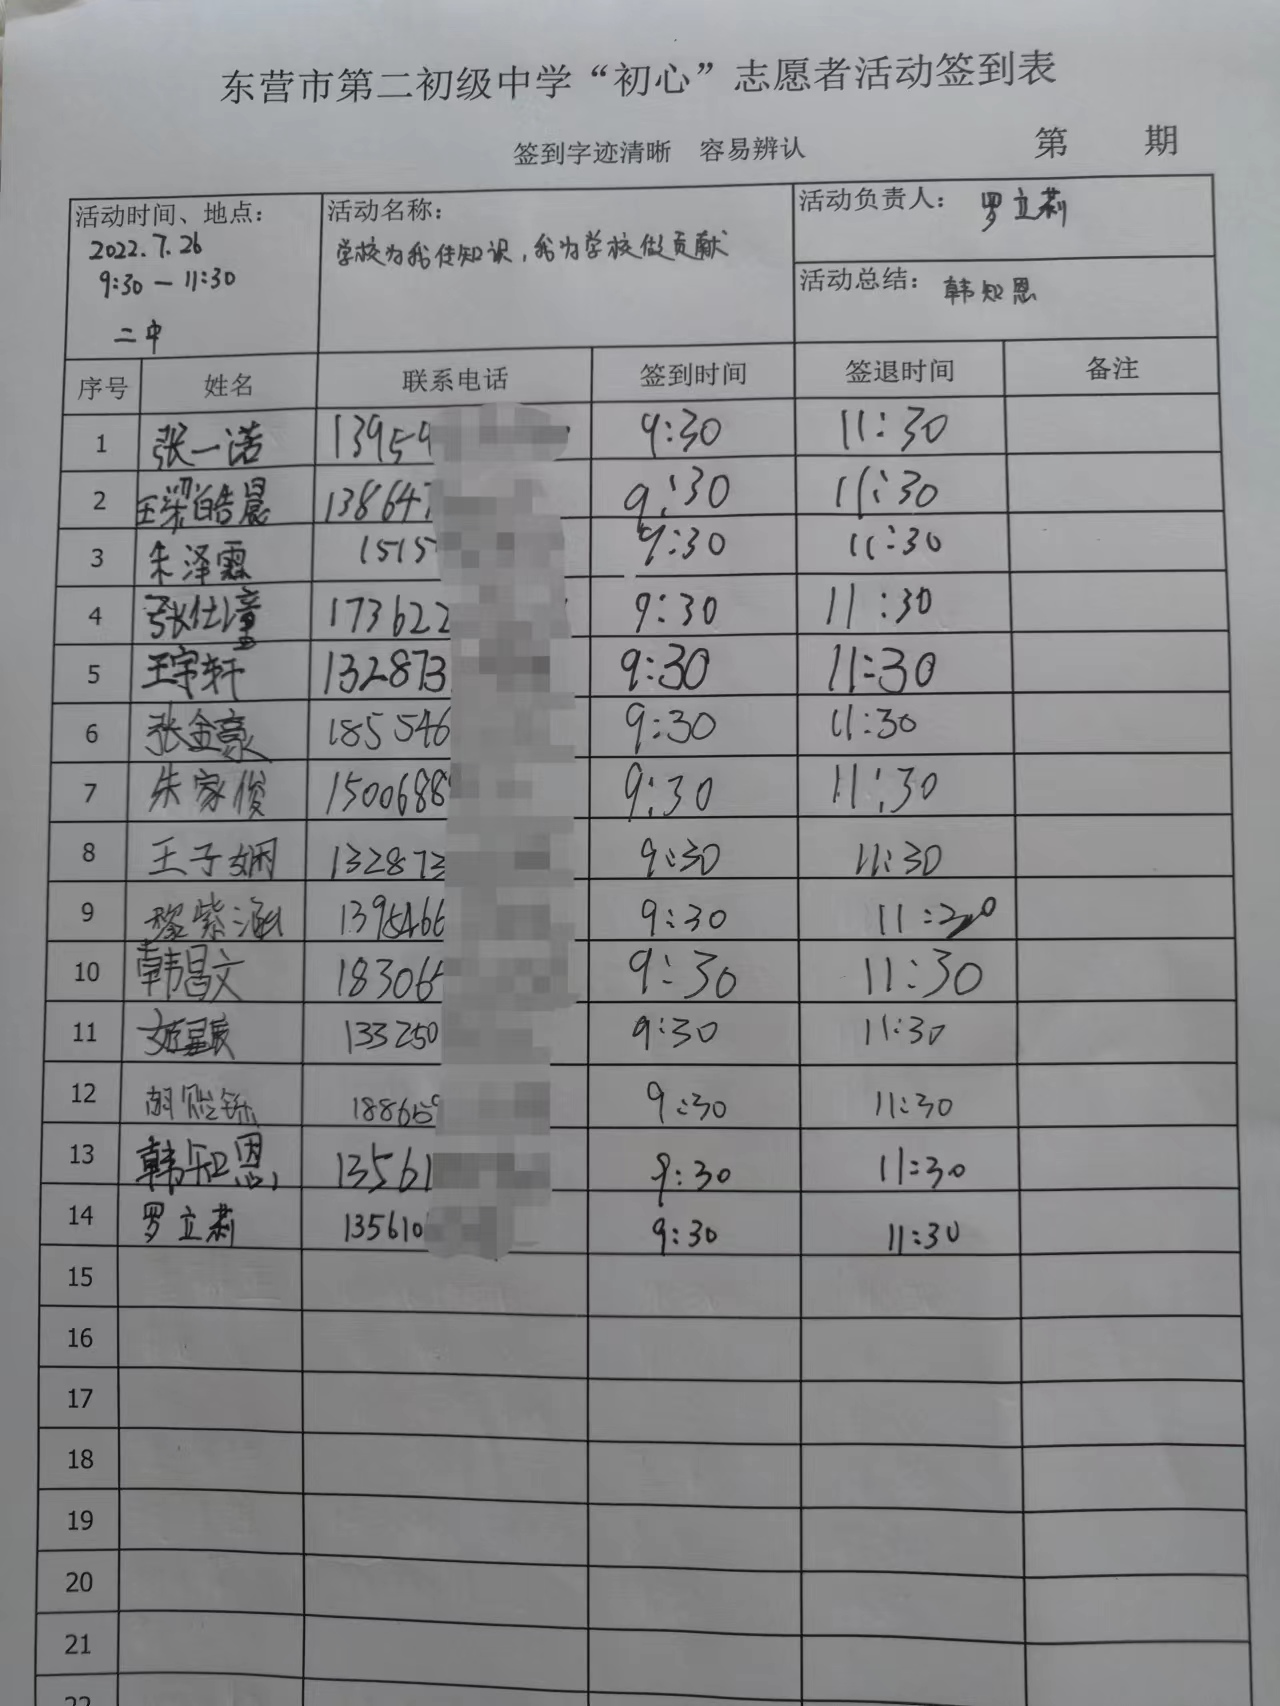 东营市第二初级中学“初心”志愿者活动签到表
签到字迹清晰 容易辨认 第 期
活动时间、地点: 活动名称: 活动负责人: 罗立莉
2022.7.26 学校为我传知识,我为学校做贡献
9:30 — 11:30 活动总结: 韩知恩
二中
序号 姓名 联系电话 签到时间 签退时间 备注
1 张一诺 13959 9:30 11:30
2 王梁皓晨 138647 9:30 11:30
3 朱泽霖 1515 9:30 11:30
4 张仕潼 173622 9:30 11:30
5 王宇轩 132873 9:30 11:30
6 张金豪 185546 9:30 11:30
7 朱家俊 1500688 9:30 11:30
8 王子娴 132873 9:30 11:30
9 黎紫涵 1395466 9:30
10 韩昌文 183065 9:30 11:30
11 133250 9:30 11:30
12 胡 188659 9:30 11:30
13 韩知恩 13561 9:30 11:30
14 罗立莉 135610 9:30 11:30
15
16
17
18
19
20
21
22